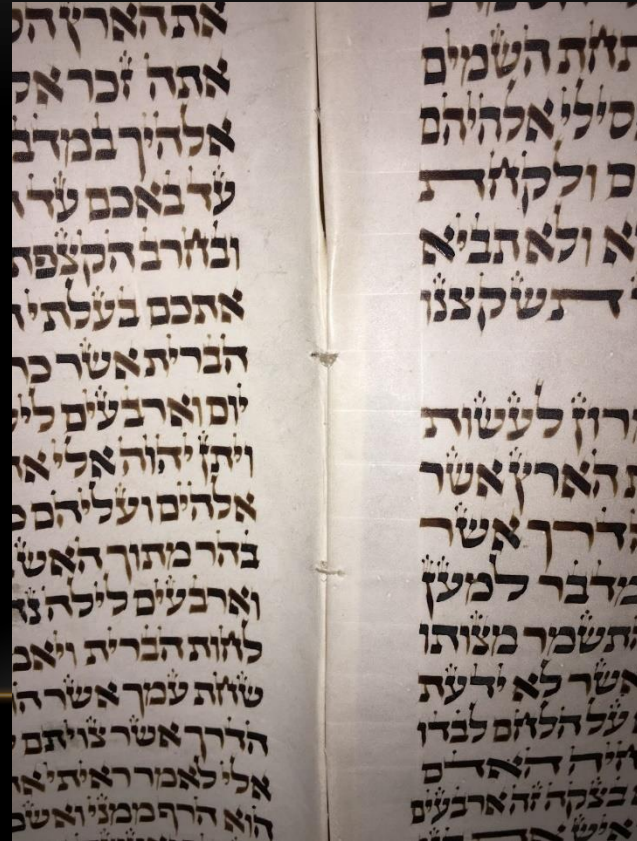 תחת השמים
סילי אלהיהם
ם ולקחת
א ולא תביא
תשקצנו
רון לעשות
ת הארץ אשר
הדרך אשר
מדבר למען
התשמר מצותו
אשר לא ידעת
על הלחם לבדו
יחיה האדם
בצקה זה ארבעים
איש את
את הארץ הט
אתה זכר אל
אלהיך במדב
עד באכם עד ה
ובחרב הקצפת
אתכם בעלתי ה
הברית אשר כר
יום וארבעים ליל
ויתן יהוה אלי א
אלהים ועליהם כ
בהר מתוך האש
וארבעים לילה נת
לחות הברית ויאמ
שחת עמך אשר הו
הדרך אשר צויתם
אלי לאמר ראיתי א
הוא הרף ממני ואשמ